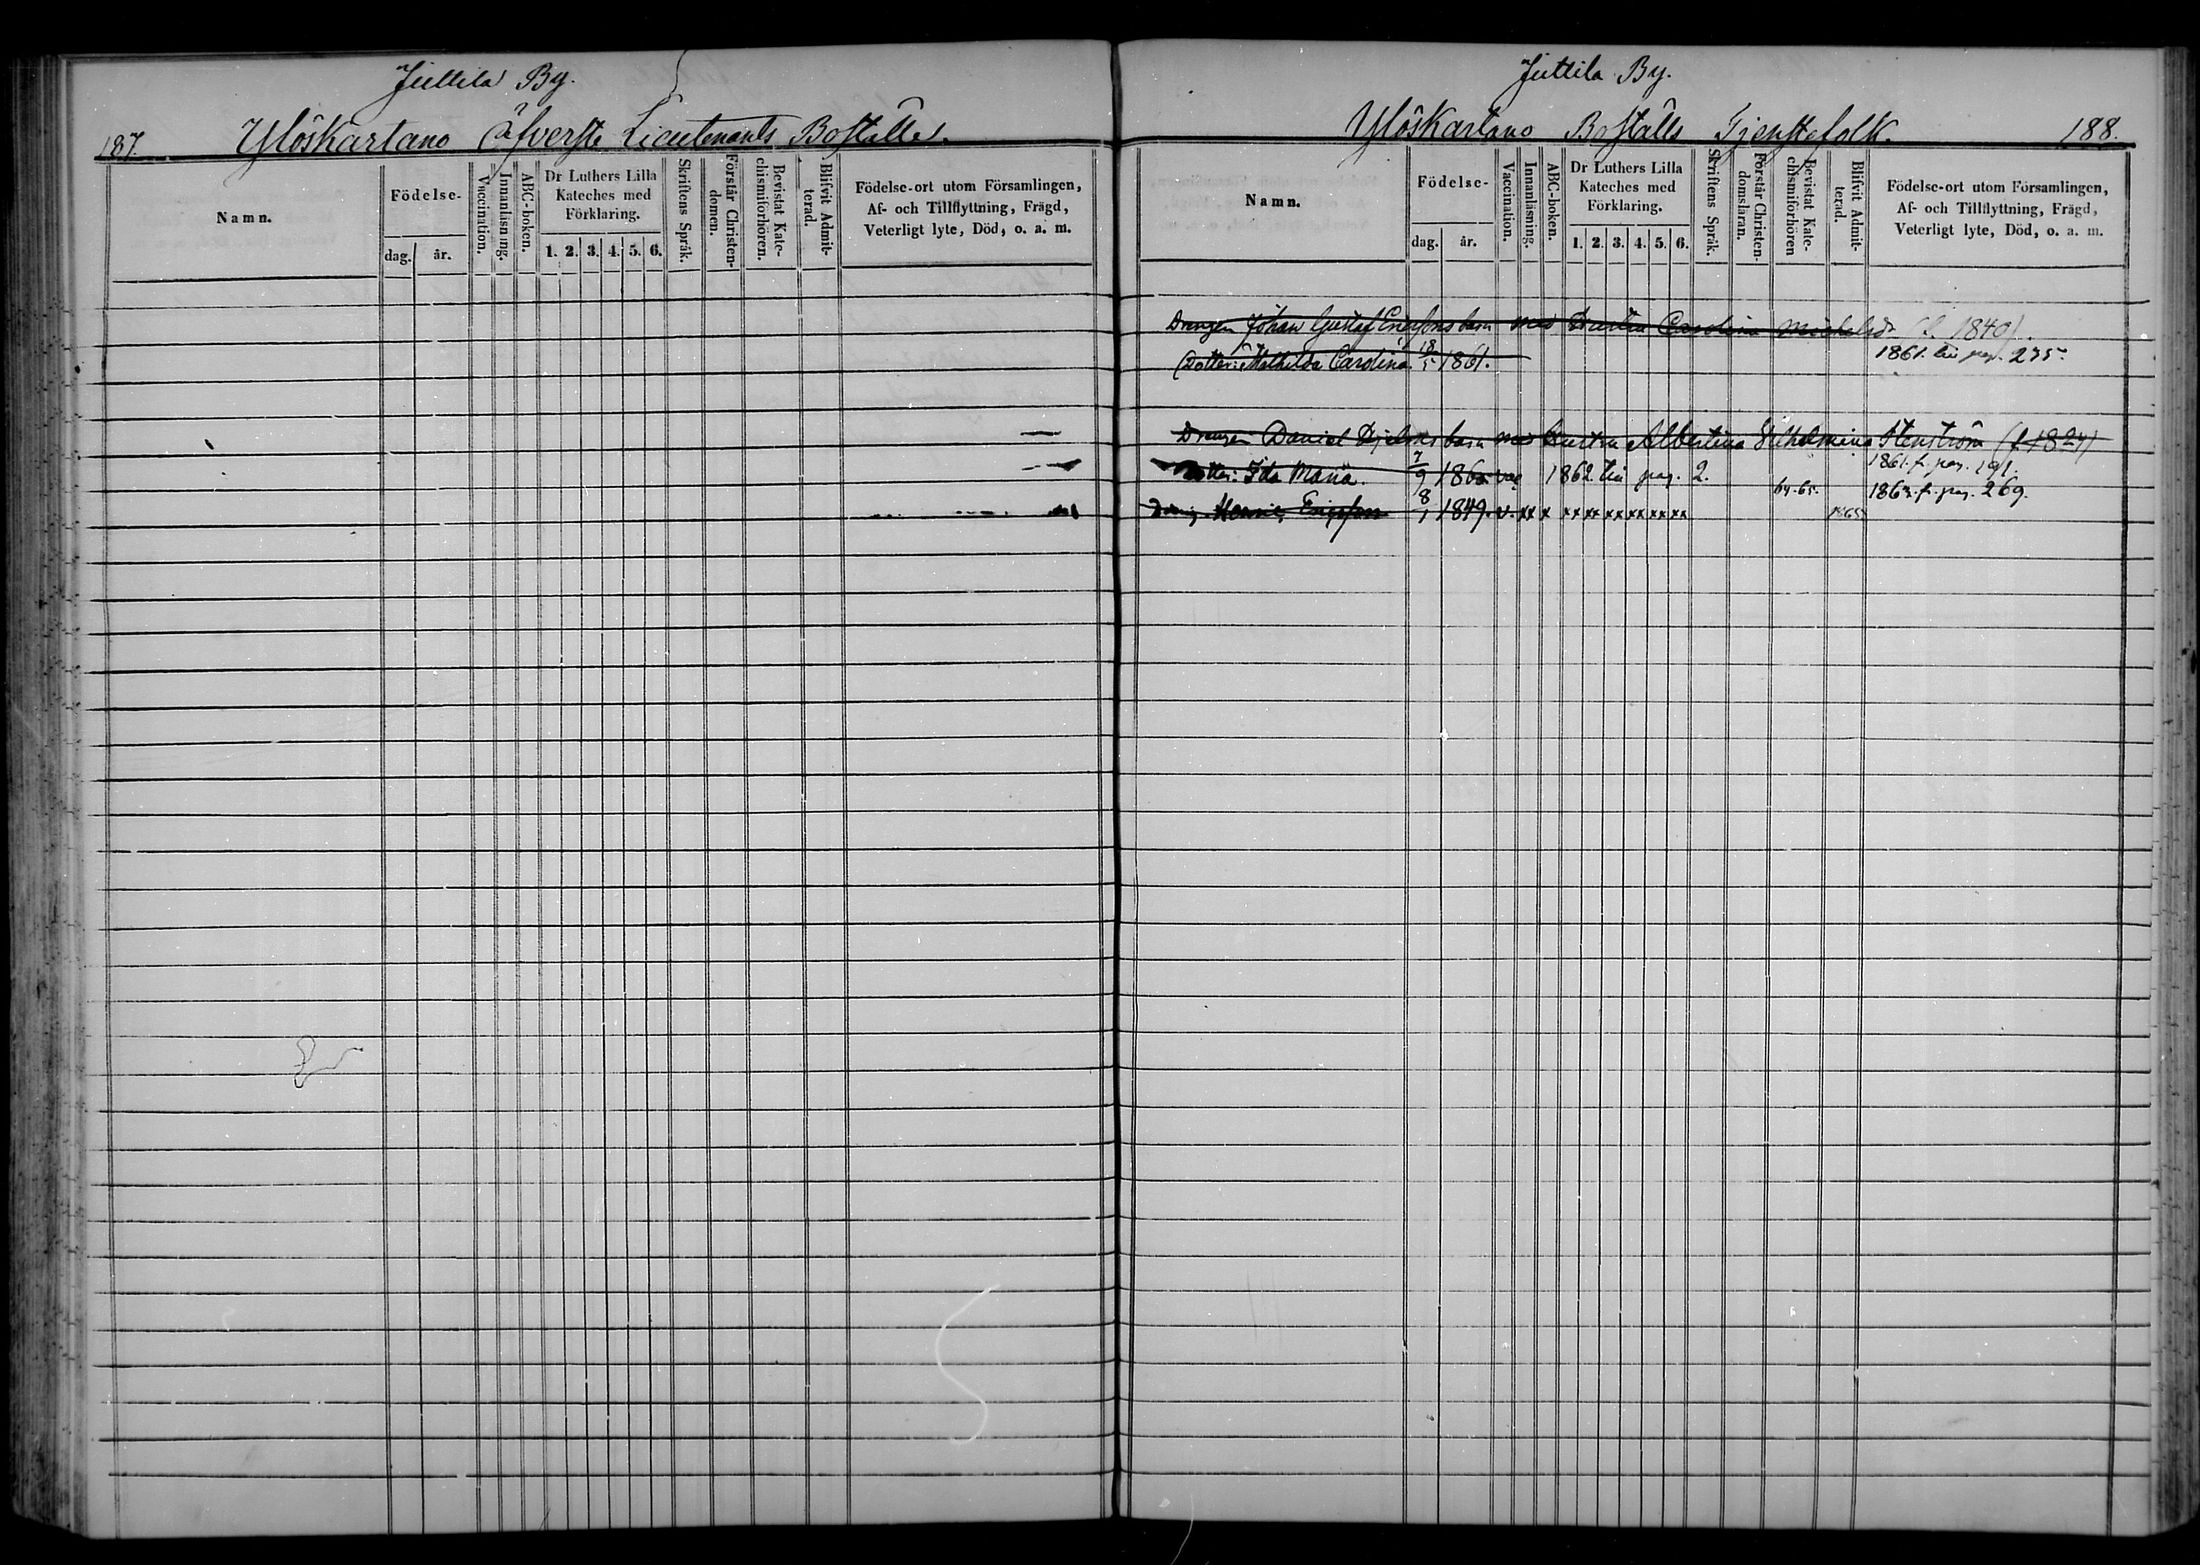 Juttila By.
187. Ylöskartano Öfverste Lieutenants Boställe.
Namn.
Födelse-
dag. år.
Vaccination.
Innanläsning.
ABC-boken.
Dr Luthers Lilla Kateches med Förklaring.
1. 2. 3. 4. 5. 6.
Skriftens Språk.
Förstår Christendomen.
Bevistat Katechismiförhören.
Blifvit Admitterad.
Födelse-ort utom Församlingen,
Af- och Tillflyttning, Frägd,
Veterligt lyte, Död, o. a. m.
Juttila By.
Ylöskartano Boställs Tjenstefolk. 188.
Namn.
Födelse-
dag. år.
Vaccination.
Innanläsning.
ABC-boken.
Dr Luthers Lilla
Kateches med
Förklaring.
1. 2. 3. 4. 5. 6.
Skriftens Språk.
Förstår Christendomsläran.
Bevistat Katechismiförhören
Blifvit Admitterad.
Födelse-ort utom Församlingen,
Af- och Tillflyttning, Frägd,
Veterligt lyte, Död, o. a. m.
Drengen Johan Gustaf Ericssons barn med Hustru Carolina Michelsdr (f. 1840)
Dotter: Mathilda Carolina 18/5 1861. 1861. till pag. 275.
Drengen Daniel barn med Hustru Albertina Wilhelmina Stenström (f. 1824)
1861. f. pag. 191.
Dotter: Ida Maria. 7/9 1860 vac 1862 till pag. 2.
Dräng Henric Ericsson 8/1 1849. v. xx x xx xx xx xx xx xx 64-65. 1865 1863. f. pag. 269.